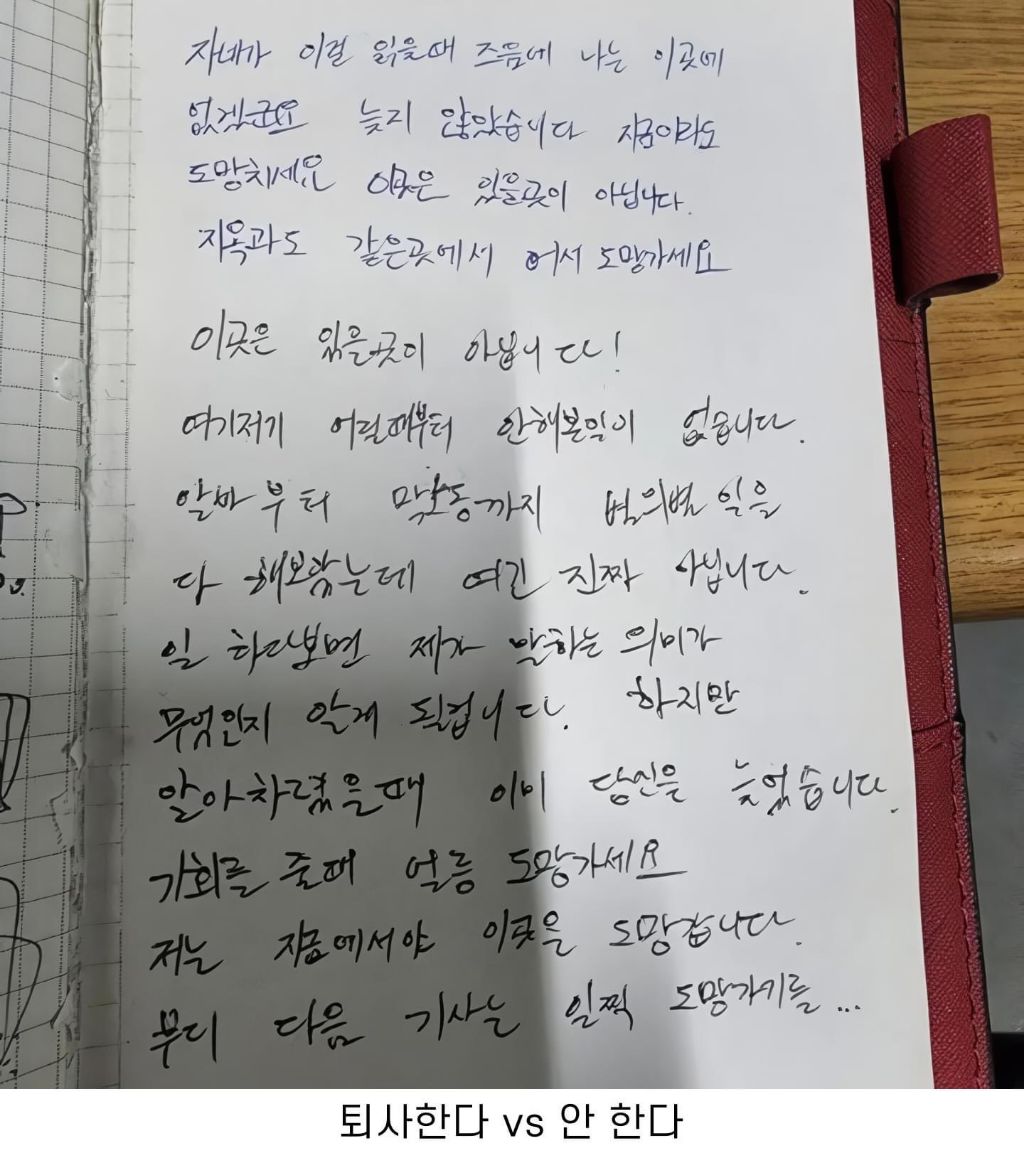 자네가 이걸 읽을때 즈음에 나는 이곳에
없겠군요 늦지 않았습니다 지금이라도
도망치세요 이곳은 있을곳이 아닙니다.
지옥과도 같은곳에서 어서 도망가세요
이곳은 있을곳이 아닙니다!
여기저기 어릴때부터 안해본일이 없습니다.
알바부터 막노동까지 별의별 일을
다 해보았는데 여긴 진짜 아닙니다.
일 하다보면 제가 말하는 의미가
무엇인지 알게 될겁니다. 하지만
알아차렸을때 이미 당신은 늦었습니다.
기회를 줄때 얼릉 도망가세요
저는 지금에서야 이곳을 도망갑니다.
부디 다음 기사는 일찍 도망가기를...
퇴사한다 vs 안 한다